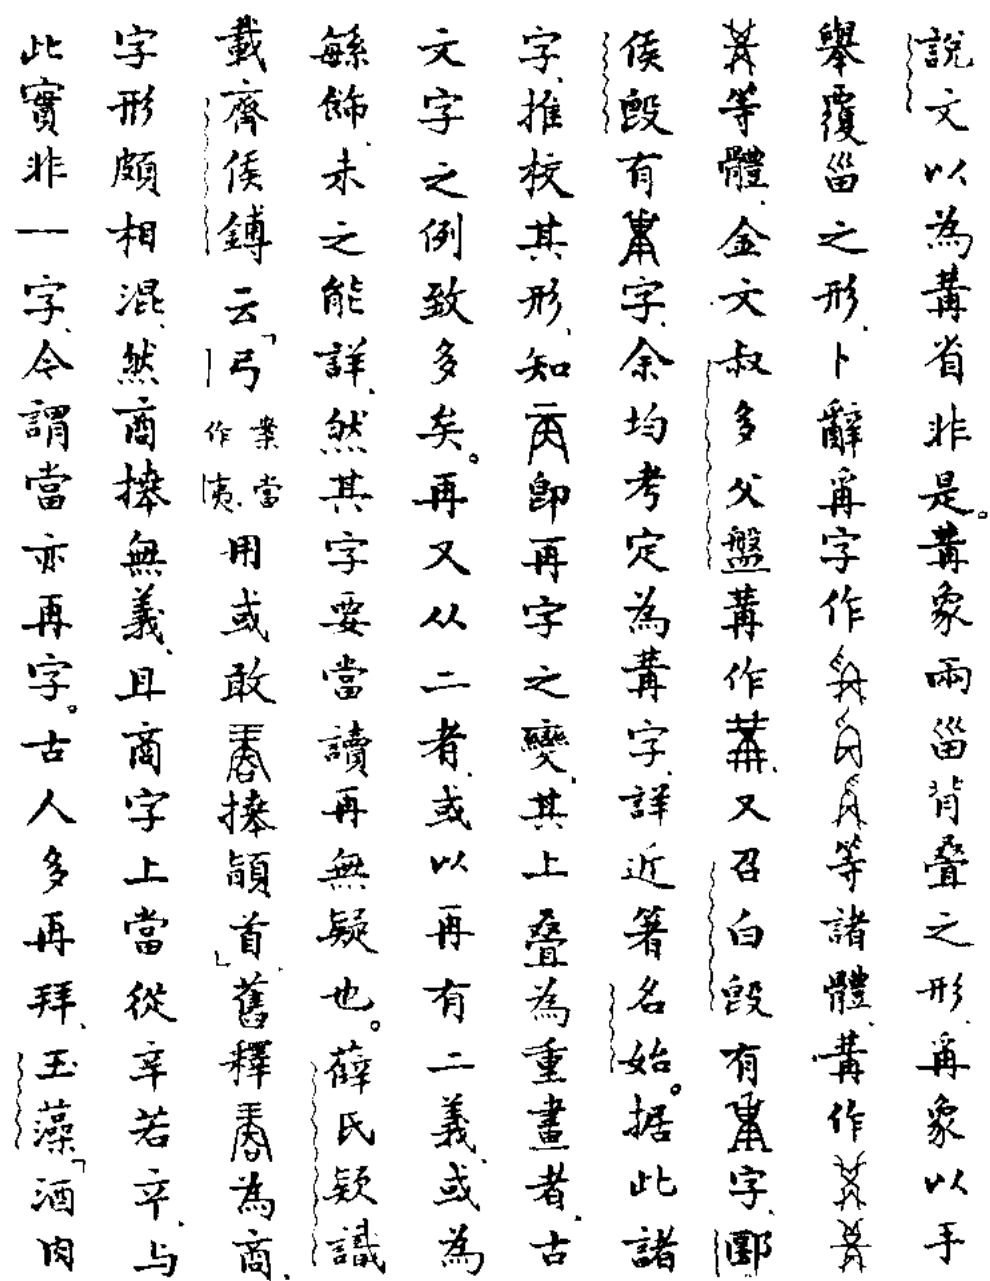 說文以為冓省非是。冓象兩甾背疊之形、爯象以手
舉覆甾之形、卜辭爯字作等諸體、冓作
等體、金文叔多父盤冓作、又召白𣪘有字、鄽
侯𣪘有字、余均考定為冓字、詳近箸名始。据此諸
字、推校其形、知即再字之變、其上疊為重畫者、古
文字之例致多矣。再又从二者、或以再有二義、或為
緐飾、未之能詳、然其字要當讀再無疑也。薛氏款識
載齊侯鎛云「弓案當作夷、用或敢捧䭫首」、舊釋為商、
字形頗相混、然商捧無義、且商字上當從辛若䇂、与
此實非一字、今謂當亦再字。古人多再拜、玉藻「酒肉